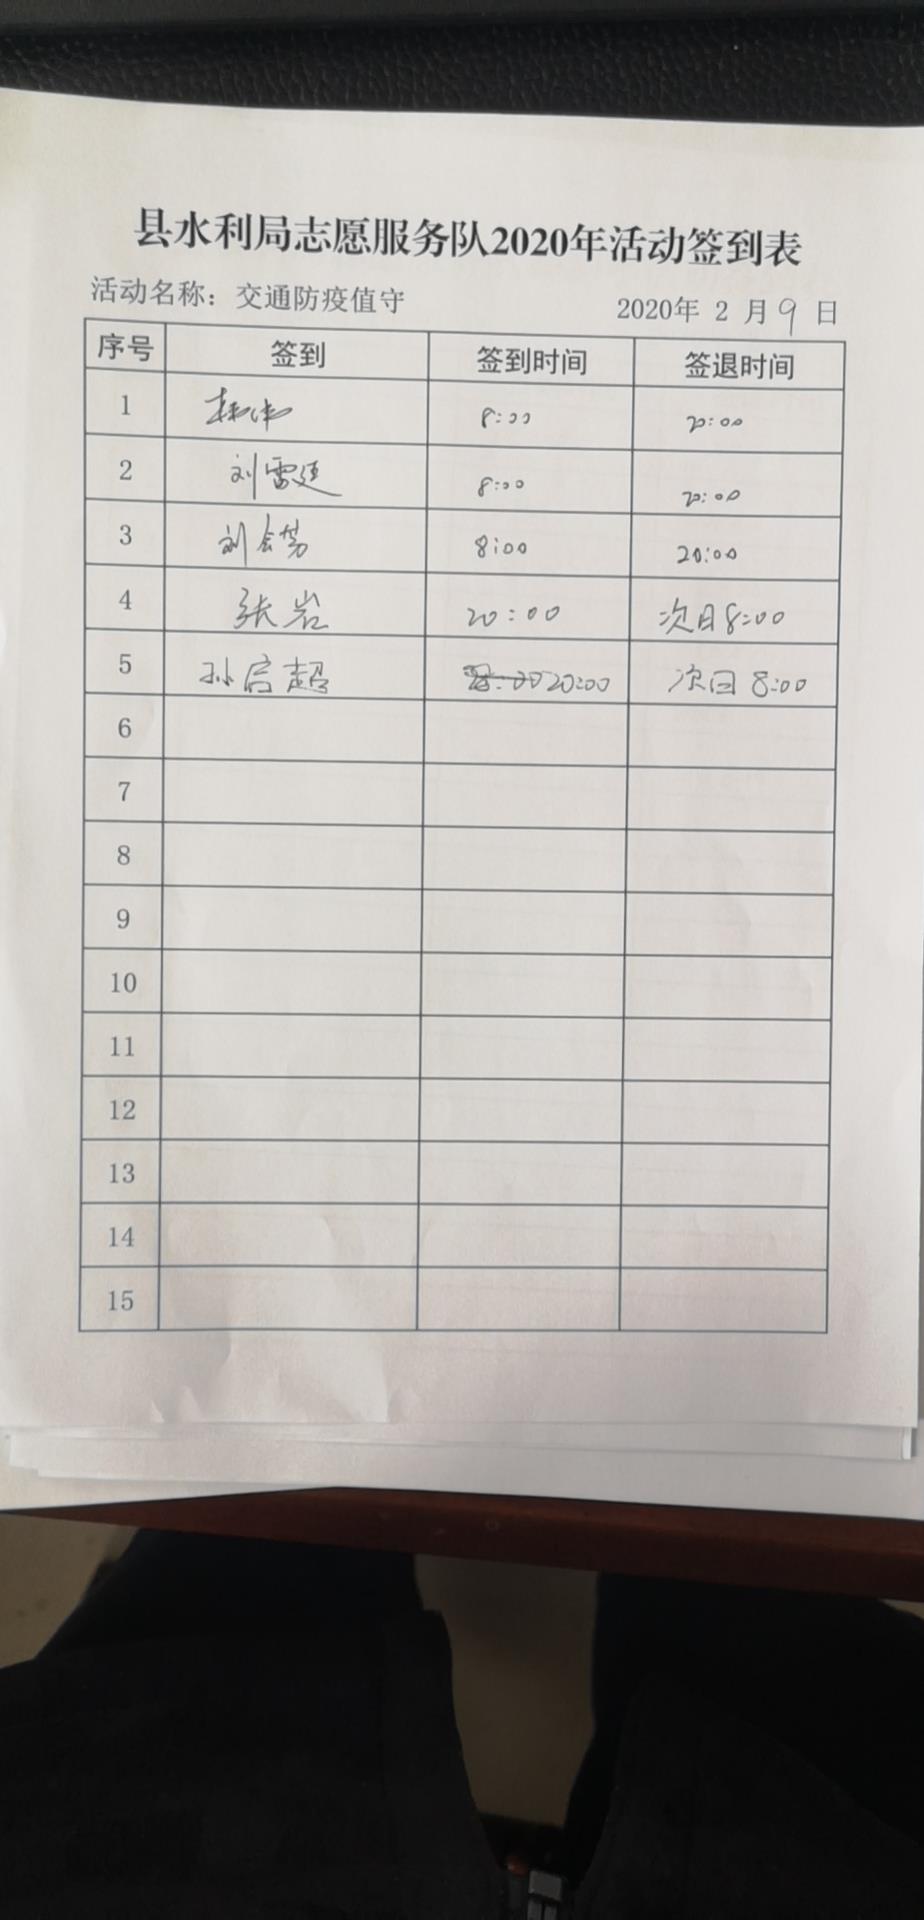 县水利局志愿服务队2020年活动签到表
活动名称：交通防疫值守 2020年 2 月 9 日
序号 签到 签到时间 签退时间
1 8:00 20:00
2 刘雷廷 8:00 20:00
3 刘会芳 8:00 20:00
4 张岩 20:00 次日8:00
5 孙启超 20:00 次日 8:00
6
7
8
9
10
11
12
13
14
15